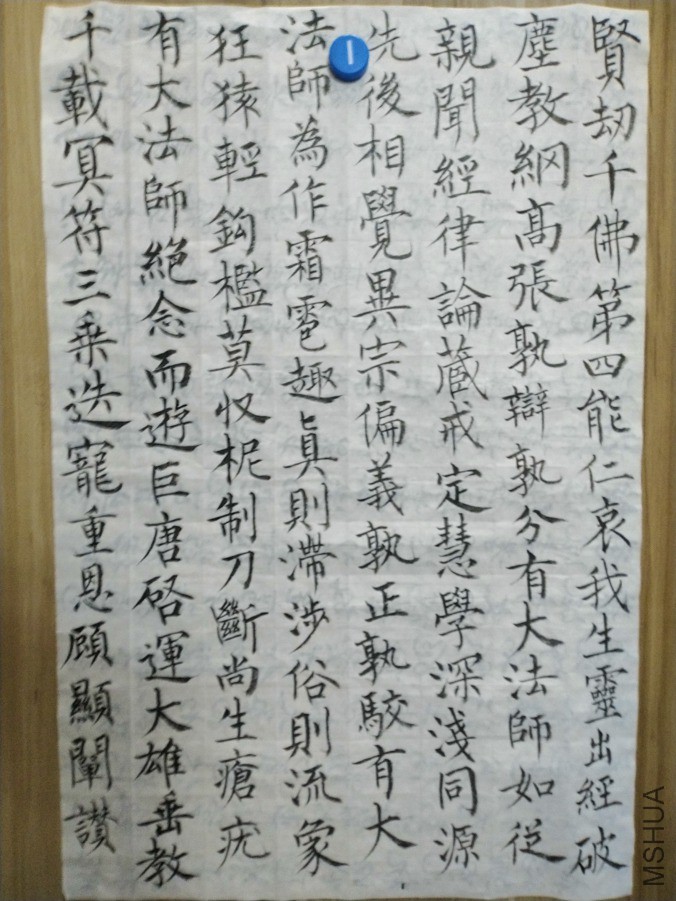 賢劫千佛第四能仁哀我生靈出經破
塵教綱高張孰辯孰分有大法師如從
親聞經律論藏戒定慧學深淺同源
先後相覺異宗偏義孰正孰駮有大
法師為作霜雹趣真則滯涉俗則流象
狂猿輕鈎檻莫收柅制刀斷尚生瘡疣
有大法師絕念而遊巨唐啓運大雄垂教
千載冥符三乘迭寵重恩顧顯闡讚
1
MSHUA